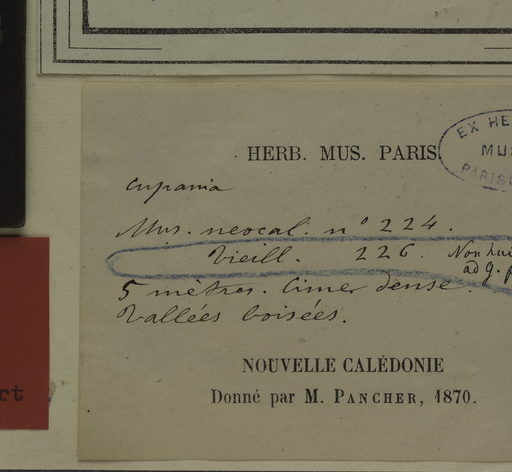 HERB. MUS. PARIS.
EX HE
MU
PARISI
Cupania
Mus. neocal. n° 224.
Vieill. 226. Non hui
ad g. p
5 mètres. Cime dense.
Vallées boisées.
NOUVELLE CALÉDONIE
Donné par M. PANCHER, 1870.
rt